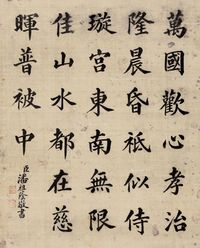 萬國歡心孝治
隆晨昏祗似侍
璇宮東南無限
佳山水都在慈
暉普被中
臣潘祖蔭敬書